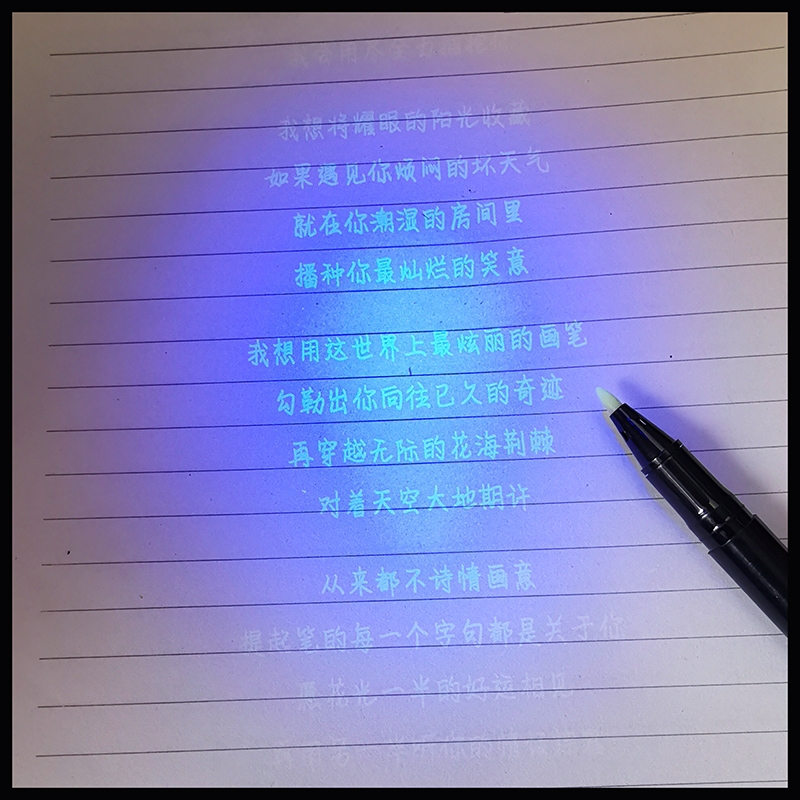 我会用尽全力拥抱你
我想将耀眼的阳光收藏
如果遇见你烦闷的坏天气
就在你潮湿的房间里
播种你最灿烂的笑意
我想用这世界上最炫丽的画笔
勾勒出你向往已久的奇迹
再穿越无际的花海荆棘
对着天空大地期许
从来都不诗情画意
提起笔的每一个字句都是关于你
愿花光一半的好运相见
你的情侣